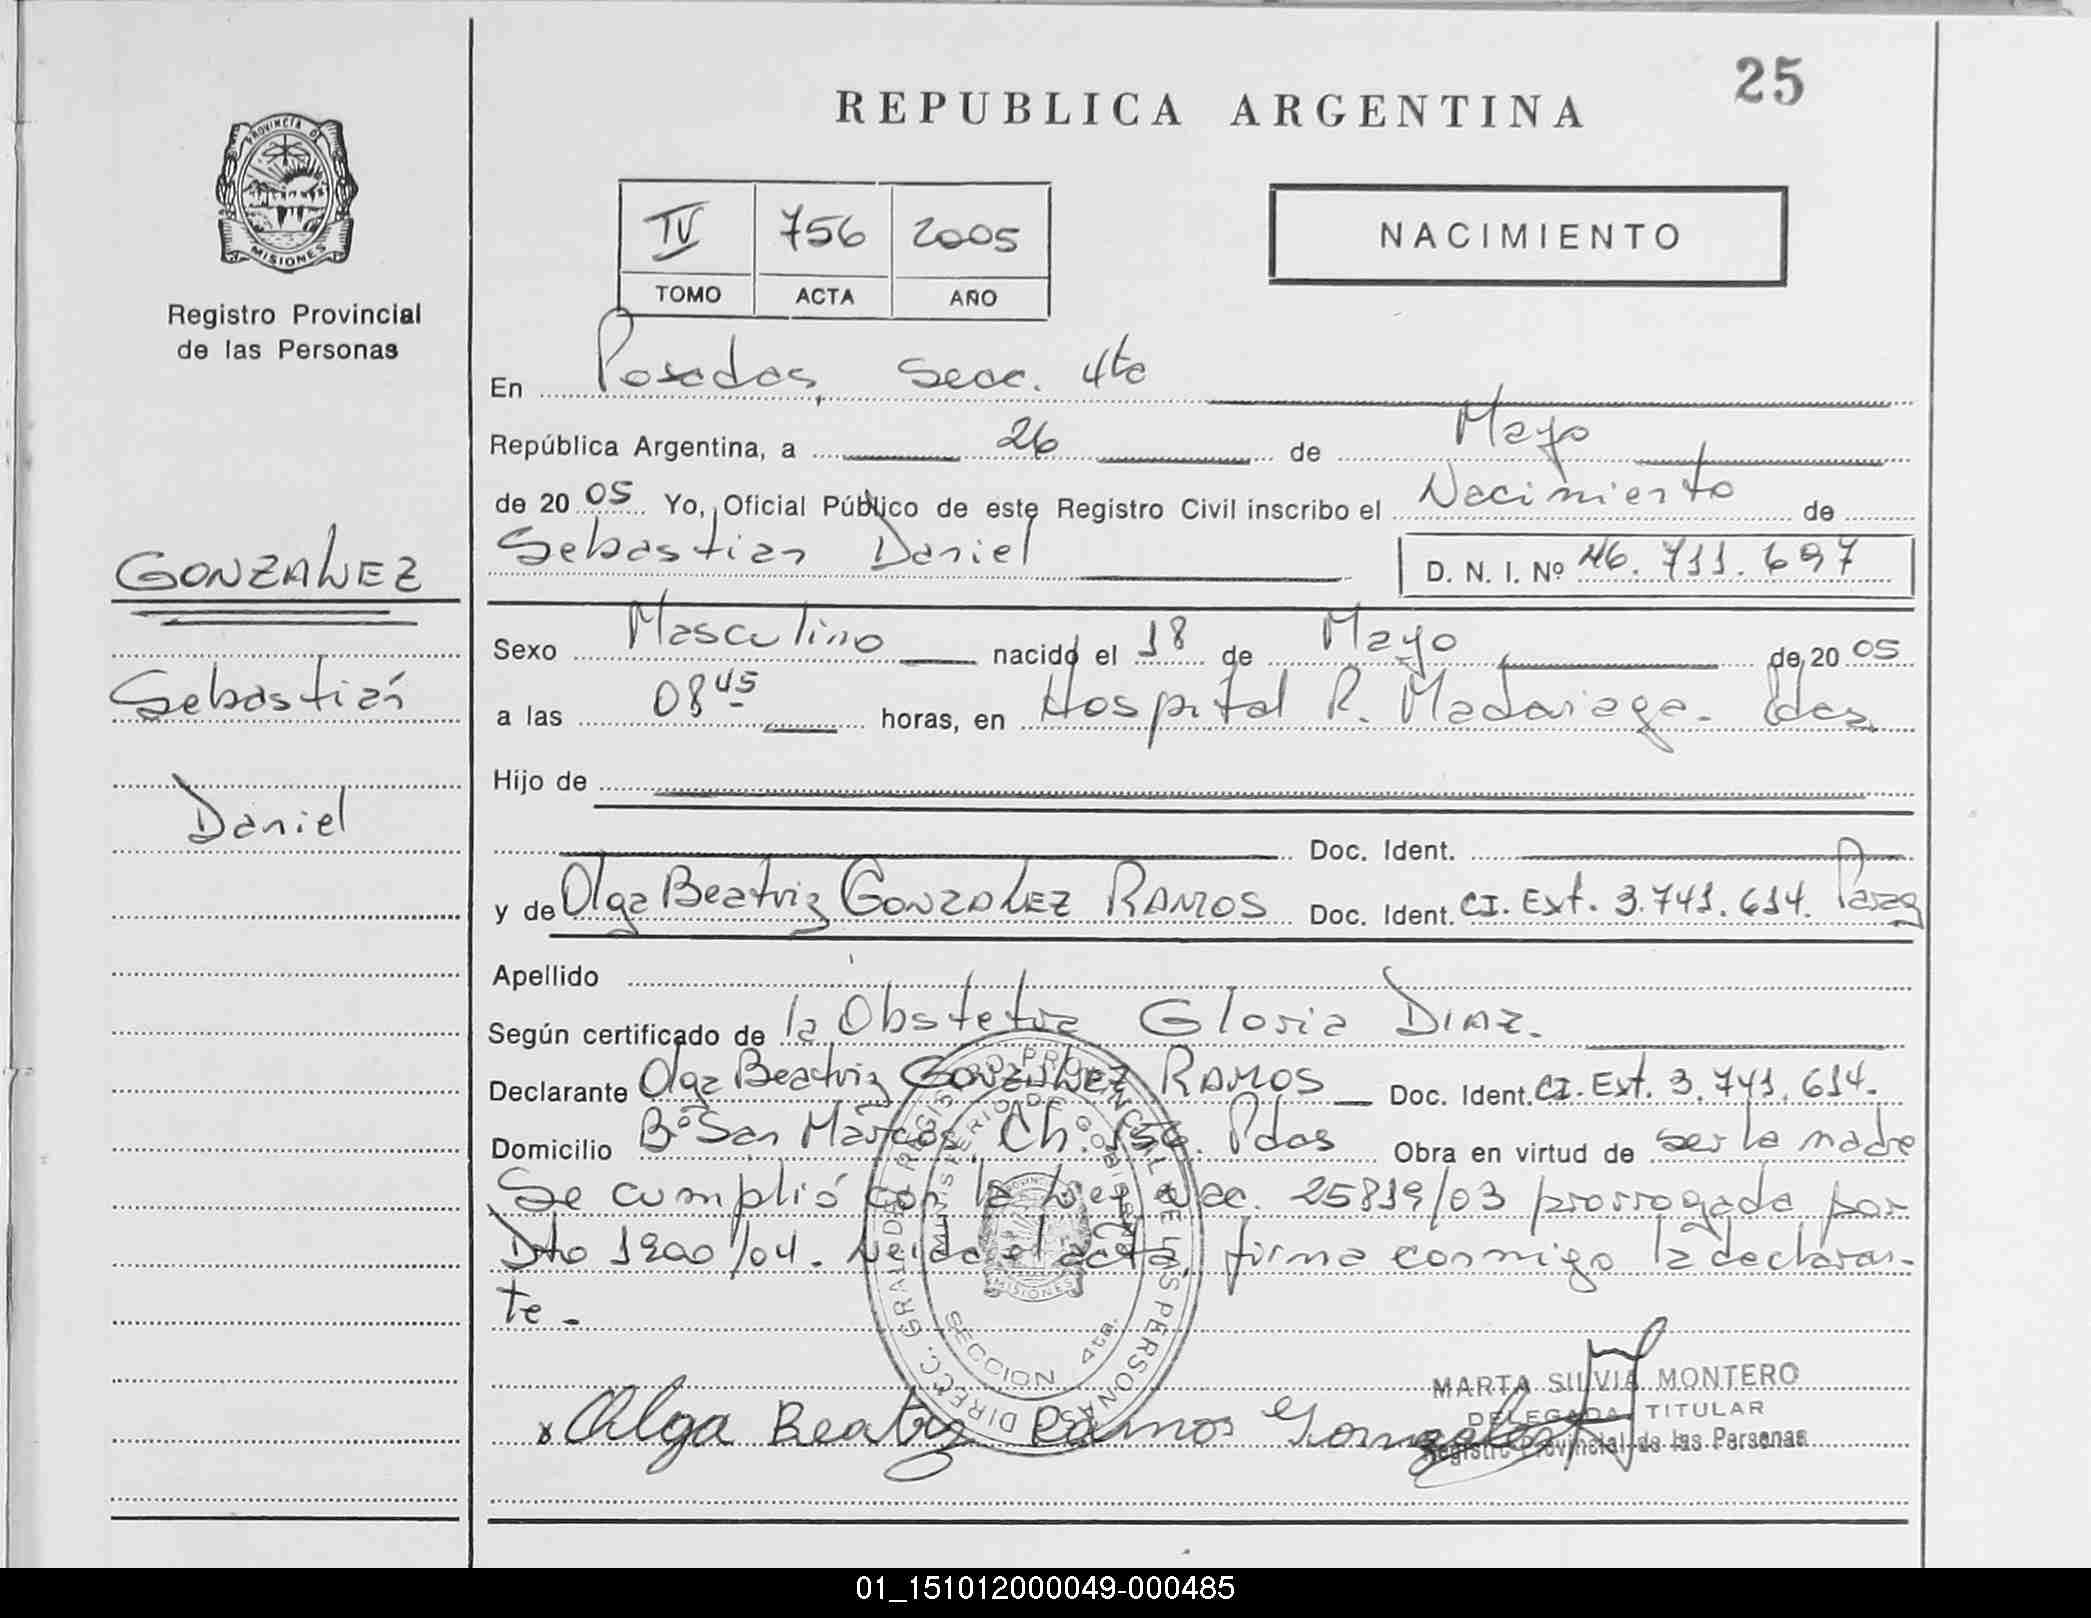 25
REPUBLICA ARGENTINA
PROVINCIA DE MISIONES
Registro Provincial
de las Personas
IV 756 2005
TOMO ACTA AÑO
NACIMIENTO
GONZALEZ
Sebastián
Daniel
En Posadas, Secc. 4ta
República Argentina, a 26 de Mayo
de 2005 Yo, Oficial Público de este Registro Civil inscribo el Nacimiento de
Sebastian Daniel D. N. I. Nº 46.711.697
Sexo Masculino nacido el 18 de Mayo de 2005
a las 08 45 horas, en Hospital R. Madariaga. Pdas
Hijo de
Doc. Ident.
y de Olga Beatriz GONZALEZ RAMOS Doc. Ident. CI. Ext. 3.741.614. Parag
Apellido
Según certificado de la Obstetra Gloria DIAZ.
Declarante Olga Beatriz GONZALEZ RAMOS Doc. Ident. CI. Ext. 3.741.614.
Domicilio Bº San Marcos, Ch. 156. Pdas Obra en virtud de ser la madre
Se cumplió con la Ley Nac. 25819/03 prorrogada por
Dto 1200/04. Leida el acta, firma conmigo la declaran-
te.
DIRECC. GRAL DEL REGISTRO PROVINCIAL DE LAS PERSONAS
MINISTERIO DE GOBIERNO
MISIONES
SECCION 4ta.
x Olga Beatriz Ramos Gonzalez
MARTA SILVIA MONTERO
DELEGADA TITULAR
Registro Provincial de las Personas
01_151012000049-000485